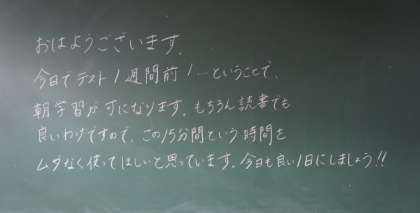 おはようございます。
今日でテスト1週間前!…ということで、
朝学習が可になります。もちろん読書でも
良いわけですので、この15分間という時間を
ムダなく使ってほしいと思っています。今日も良い1日にしましょう!!